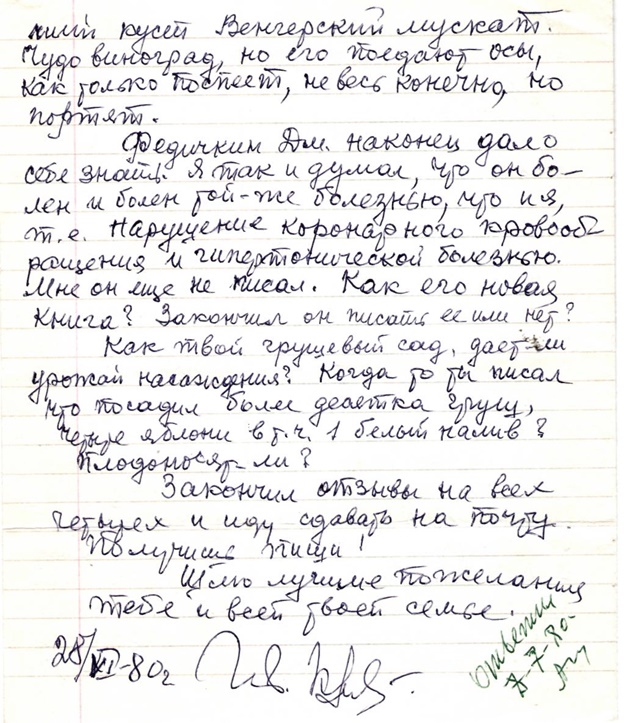 ший куст Венгерский мускат.
Чудо виноград, но его поедают осы,
как только поспеет, не весь конечно, но
портят.
Федичкин Дм. наконец дало
себе знать. Я так и думал, что он бо-
лен и болен той-же болезнью, что и я,
т.е. Нарушение коронарного кровооб
ращения и гипертонической болезнью.
Мне он еще не писал. Как его новая
книга? Закончил он писать ее или нет?
Как твой грушевый сад, дает ли
урожай насаждения? Когда то ты писал
что посадил более десятка груш,
четыре яблони в т.ч. 1 белый налив?
Плодоносят ли?
Закончил отзывы на всех
четырех и иду сдавать на почту.
Получишь пиши!
Шлю лучшие пожелания
тебе и всей твоей семье.
28/VI-80г
Ответил
8-7-80-